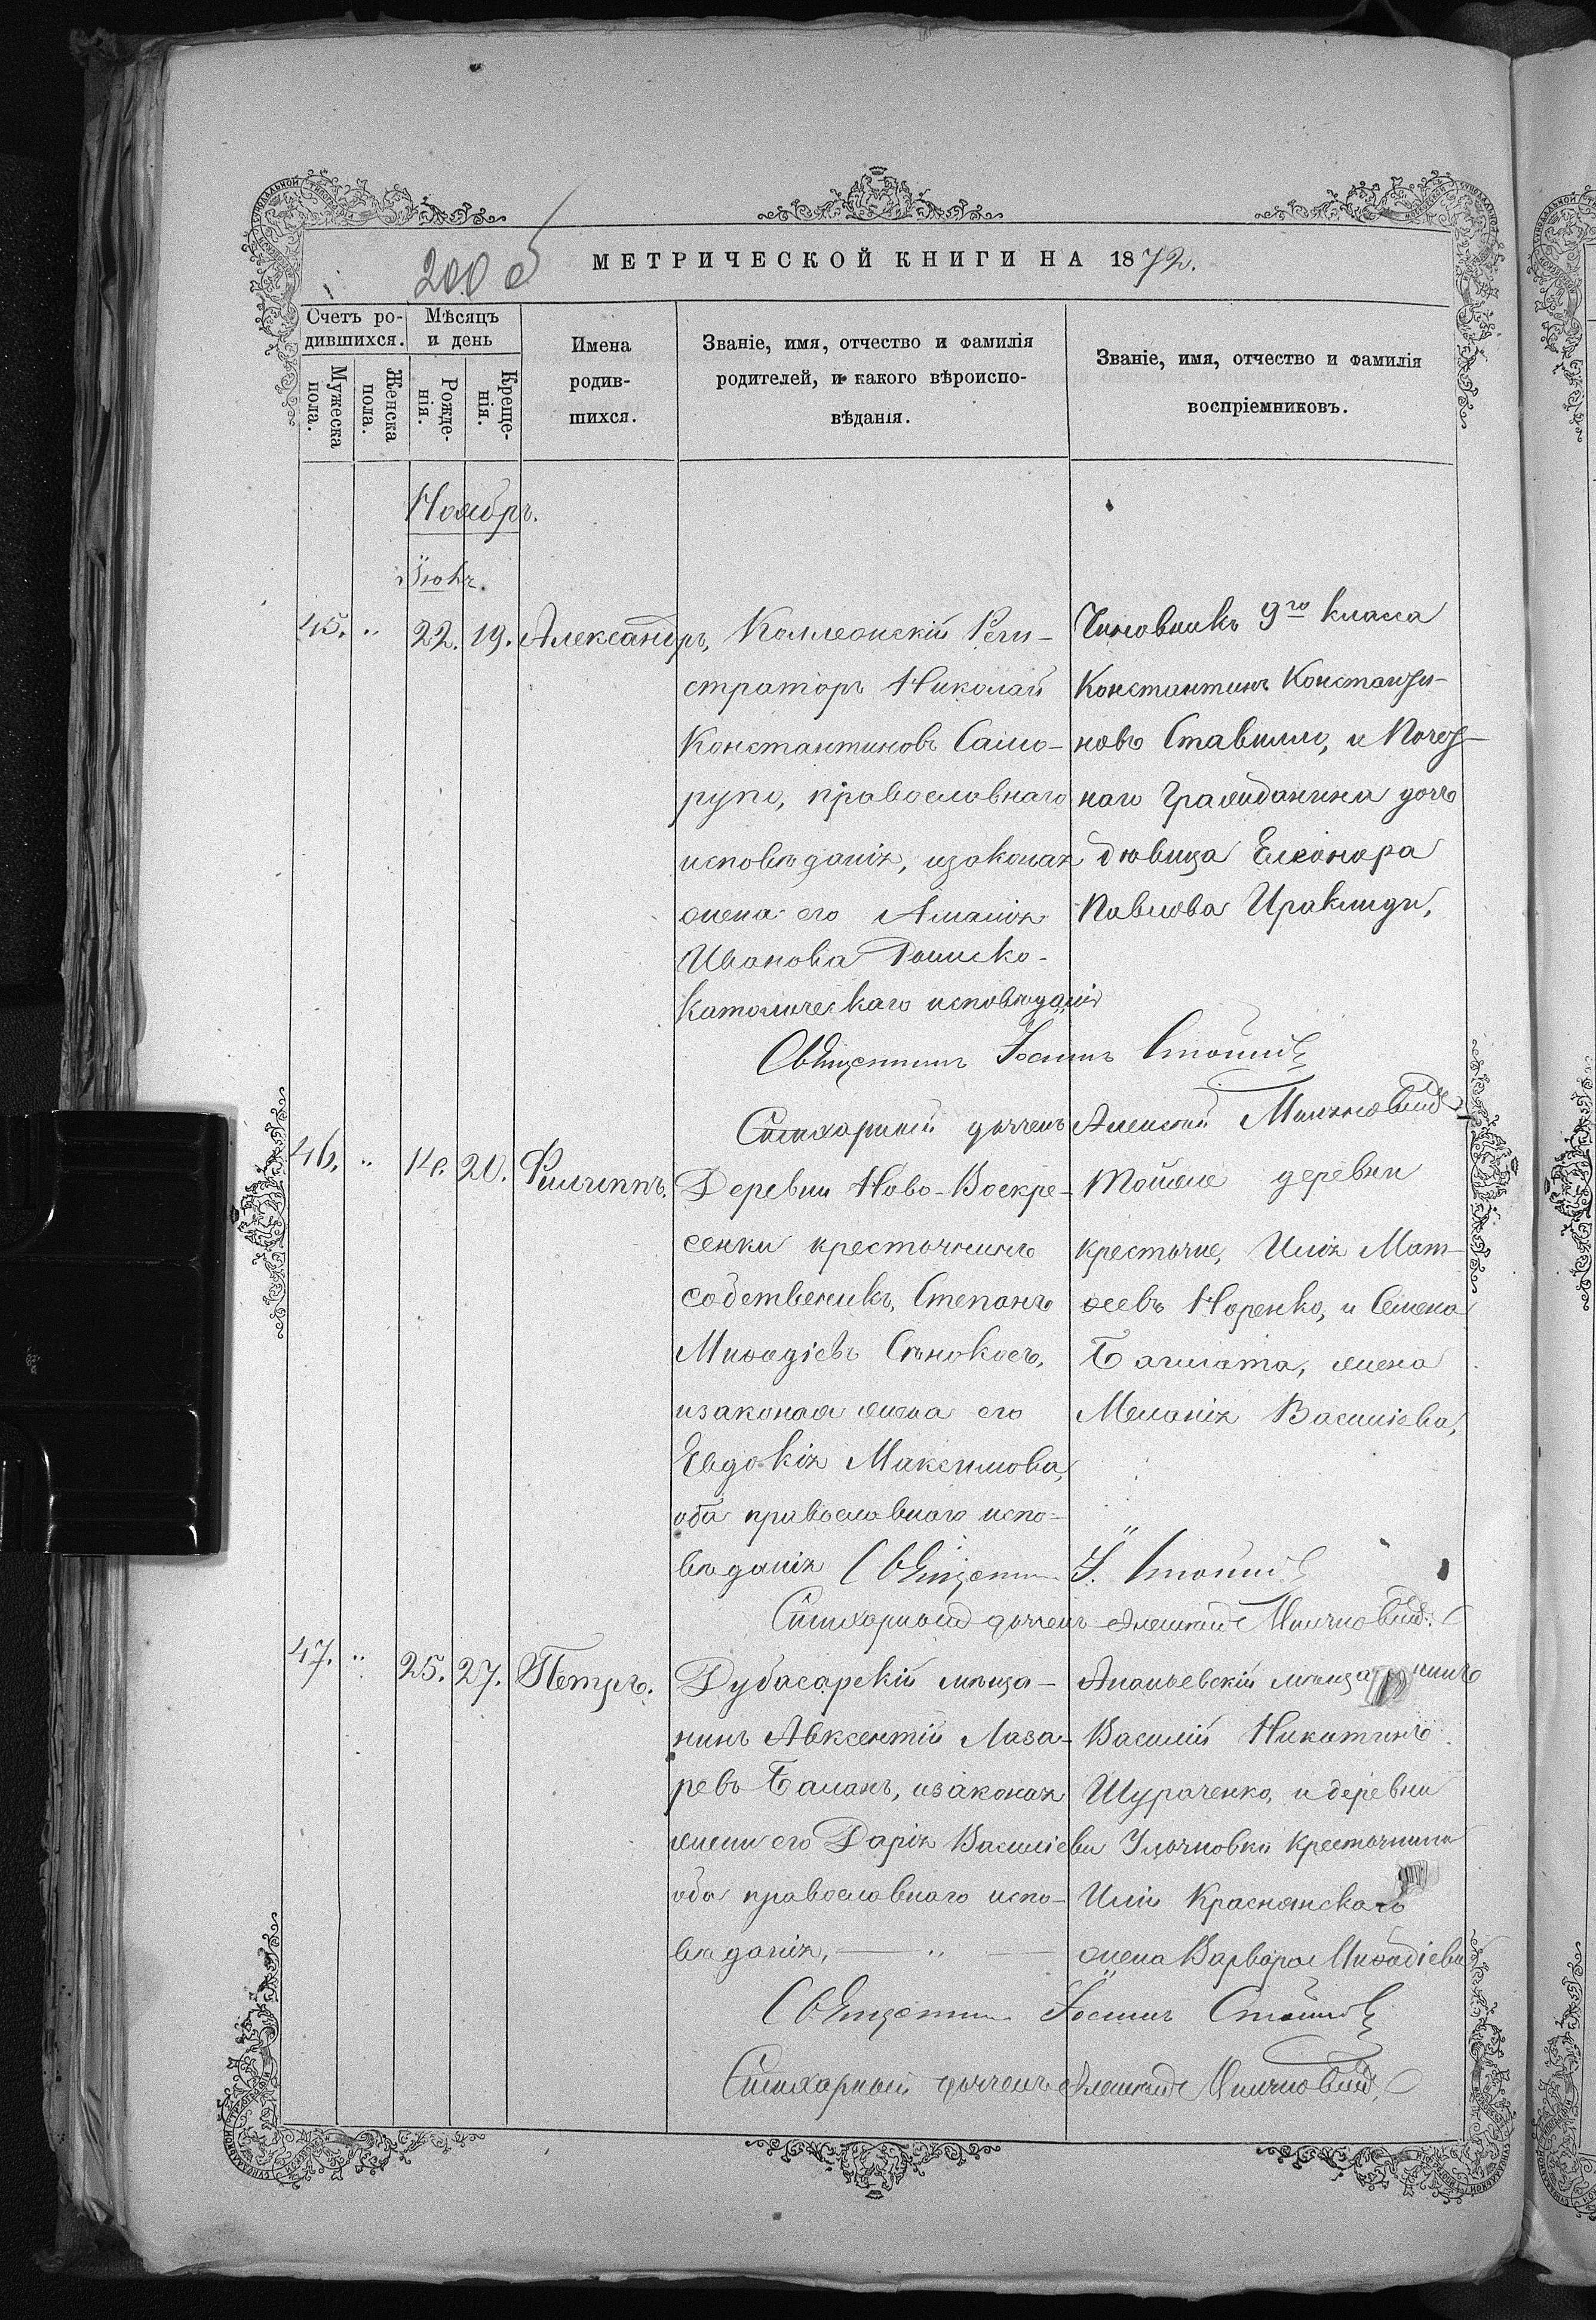 200 об
МЕТРИЧЕСКОЙ КНИГИ НА 1872.
Счетъ ро-
дившихся.
Мужеска
пола.
Женска
пола.
Мѣсяцъ
и день
Рожде-
нія.
Креще-
нія.
Имена
родив-
шихся.
Званіе, имя, отчество и фамилія
родителей, и какого вѣроиспо-
вѣданія.
Званіе, имя, отчество и фамилія
воспріемниковъ.
Ноябрь.
45. " 22. 19. Александръ,
Коллежскій Реги-
страторъ Николай
Константиновъ Само-
рупо, православнаго
исповѣданія, изаконая
жена его Амалія
Иванова Римско-
католическаго исповѣданія
Чиновникъ 9го класса
Константинъ Константи-
новъ Ставилло, и Почет-
наго Гражданина дочь
дѣвица Елеонора
Павлова Ираклиди,
Священникъ Іоаннъ
Стихарный дьячекъ Алексій
46. " 14. 20. Филиппъ.
Деревни Ново-Воскре-
сенки крестьянинъ
собственикъ, Степанъ
Миѳодіевъ Сѣнокосъ,
изаконая жена его
Евдокія Максимова,
оба православнаго испо-
вѣданія
Тойже деревни
крестьяне, Илія Мат-
ѳеевъ Норенко, и Семена
Баглата, жена
Меланія Василіева,
Священник І.
Стихарный дьячекъ Алексій
47. " 25. 27. Петръ.
Дубасарскій мѣща-
нинъ Авксентій Лаза-
ревъ Баланъ, изаконая
жена его Дарія Василіева
оба православнаго испо-
вѣданія, — " —
Ананьевскій мѣщанинъ
Василій Никитинъ
Шураченко, и деревни
крестьянина
Иліи Краснянскаго
жена Варвара Миѳодіева
Священник Іоаннъ
Стихарный дьячекъ Алексій